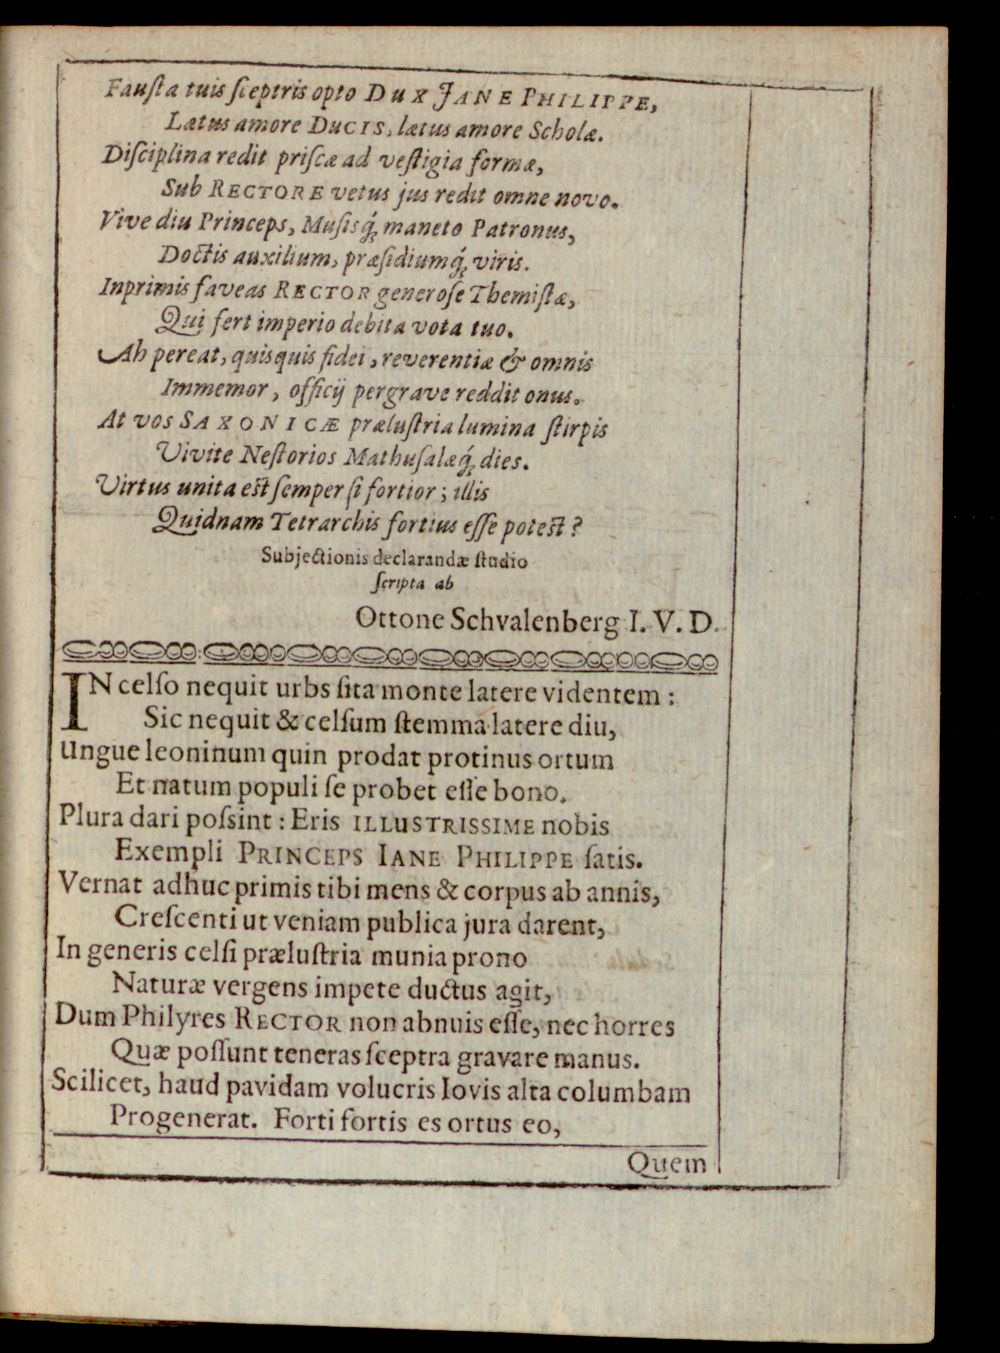 Fauſta tuis ſceptris opto DUX JANE PHILIPPE,
Lætus amore DUCIS, lætus amore Scholæ.
Diſciplina redit priſcæ ad veſtigia formæ,
Sub RECTORE vetus jus redit omne novo.
Vive diu Princeps, Muſisq́; maneto Patronus,
Doctis auxilium, præſidiumq́; viris.
Inprimis faveas RECTOR generoſe Themiſtæ,
Qui fert imperio debita vota tuo.
Ah pereat, quisquis fidei, reverentiæ & omnis
Immemor, officij pergrave reddit onus.
At vos SAXONICÆ præluſtria lumina ſtirpis
Vivite Neſtorios Mathuſalæq́; dies.
Virtus unita eſt ſemper ſi fortior; illis
Quidnam Tetrarchis fortius eſſe poteſt?
Subjectionis declarandæ ſtudio
ſcripta ab
Ottone Schvalenberg I. V. D.
IN celſo nequit urbs ſita monte latere videntem:
Sic nequit & celſum ſtemma latere diu,
Ungue leoninum quin prodat protinus ortum
Et natum populi ſe probet eſſe bono.
Plura dari poſsint: Eris ILLUSTRISSIME nobis
Exempli PRINCEPS IANE PHILIPPE ſatis.
Vernat adhuc primis tibi mens & corpus ab annis,
Creſcenti ut veniam publica jura darent,
In generis celſi præluſtria munia prono
Naturæ vergens impete ductus agit,
Dum Philyres RECTOR non abnuis eſſe, nec horres
Quæ poſſunt teneras ſceptra gravare manus.
Scilicet, haud pavidam volucris Iovis alta columbam
Progenerat. Forti fortis es ortus eo,
Quem